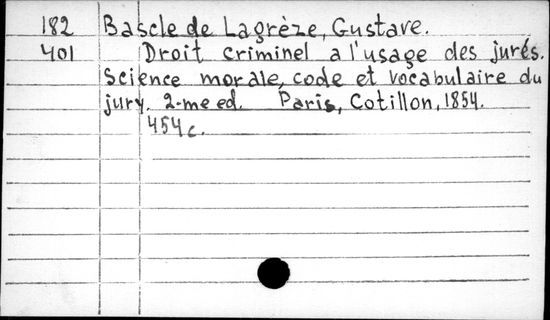 182 Bascle de Lagrèze, Gustave.
401 Droit criminel a l'usage des jurés.
Science morale, code et vocabulaire du
jury. 2-me ed. Paris, Cotillon, 1854.
454 c.